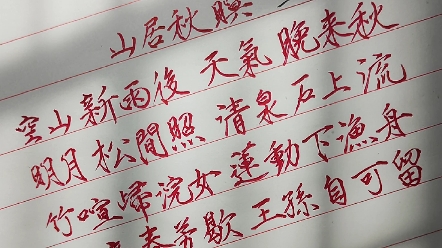 山居秋暝
空山新雨後 天氣晚来秋
明月松間照 清泉石上流
竹喧歸浣女 蓮動下漁舟
春芳歇 王孫自可留